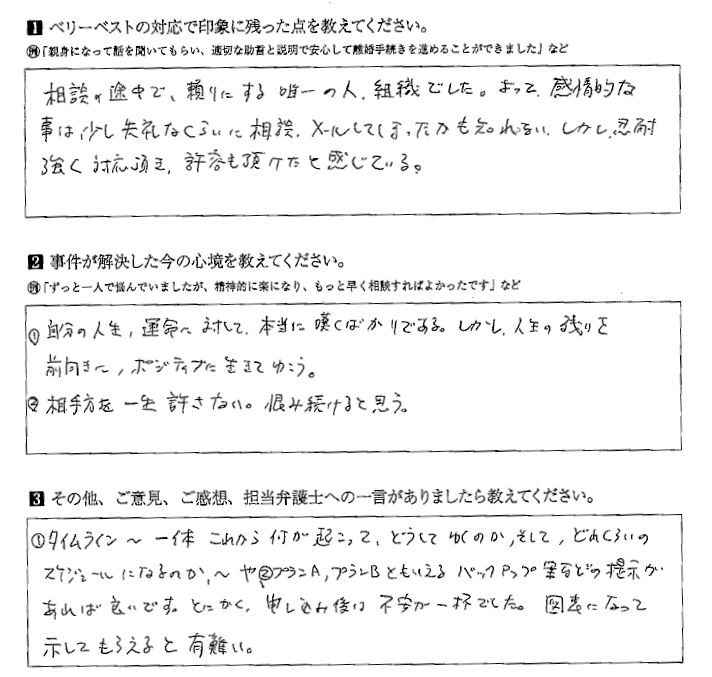 1 ベリーベストの対応で印象に残った点を教えてください。
例「親身になって話を聞いてもらい、適切な助言と説明で安心して離婚手続きを進めることができました」など
相談の途中で、頼りにする唯一の人、組織でした。よって、感情的な
事は、少し失礼なくらいに相談、メールしてしまったかも知れない、しかし、忍耐
強く対応頂き、許容も頂けたと感じている。
2 事件が解決した今の心境を教えてください。
例「ずっと一人で悩んでいましたが、精神的に楽になり、もっと早く相談すればよかったです」など
① 自分の人生、運命へ対して、本当に嘆くばかりである。しかし、人生の残りを
前向きへ、ポジティブに生きてゆこう。
② 相手方を一生許さない。恨み続けると思う。
3 その他、ご意見、ご感想、担当弁護士への一言がありましたら教えてください。
①タイムライン〜一体これから何が起こって、どうしてゆくのか、そして、どれくらいの
スケジュールになるのか、〜や②プランA,プランBともいえるバックPップ案などの提示が
あれば良いです。とにかく、申し込み後は不安が一杯でした。図表になって
示してもらえると有難い。